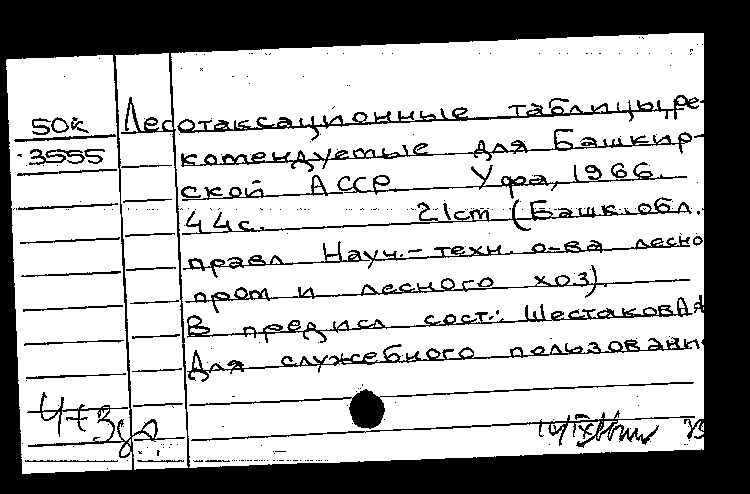 50к Лесотаксационные таблицы, ре-
3555 комендуемые для Башкир-
ской АССР. Уфа, 1966.
44с. 21cm (Башк. обл.
правл Науч.-техн. о-ва лесно
пром и лесного хоз).
В предисл сост.: Шестаков А
Для служебного пользовани